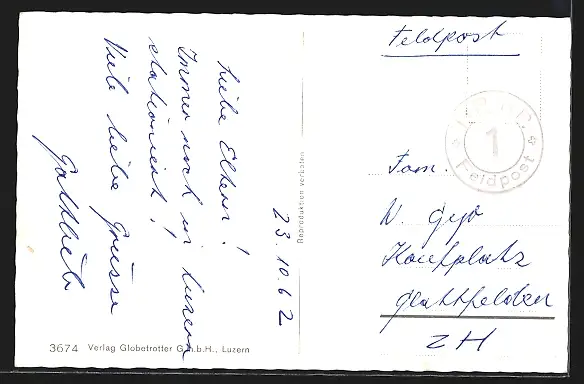 23.10.62
Liebe Eltern!
Immer noch in Luzern
stationiert!
Viele liebe Grüsse
Gottlieb
Feldpost
1
Feldpost
Fam.
W. Gyr
Kaufplatz
Glattfelden
ZH
Reproduktion verboten
3674 Verlag Globetrotter G.m.b.H., Luzern